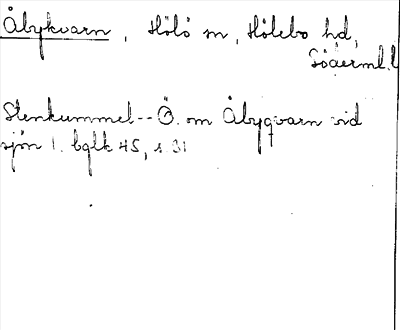 Åbykvarn, Hölö sn, Hölebo hd,
Söderml. l
Stenkummel -- Ö. om Åbyqvarn vid
sjön l. bglk 45, s. 31